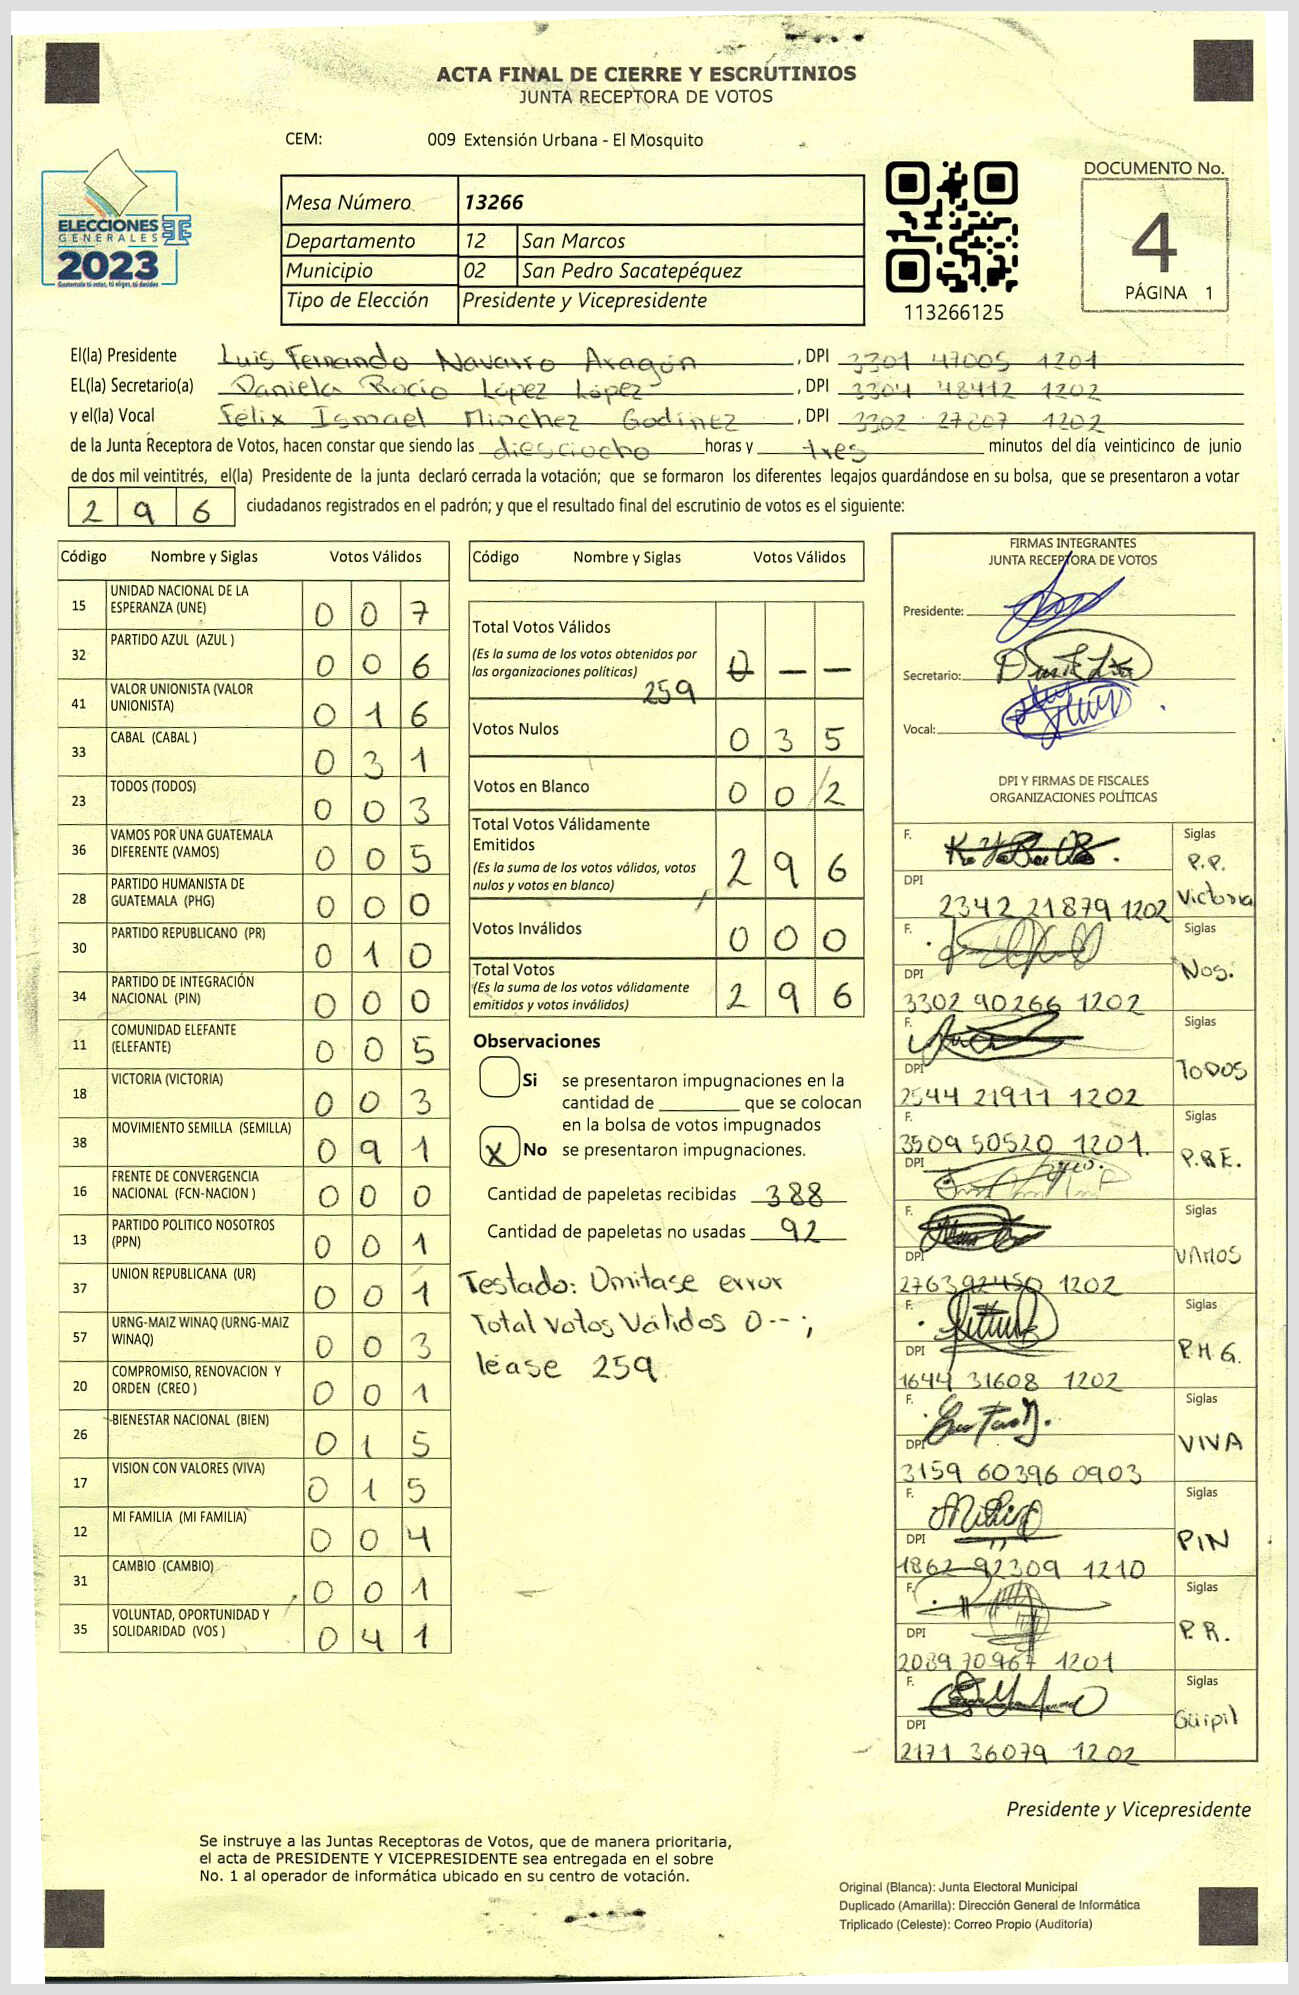 ACTA FINAL DE CIERRE Y ESCRUTINIOS
JUNTA RECEPTORA DE VOTOS
CEM: 009 Extensión Urbana - El Mosquito
ELECCIONES
GENERALES
2023
Guatemala tú votas, tú eliges, tú decides
Mesa Número 13266
Departamento 12 San Marcos
Municipio 02 San Pedro Sacatepéquez
Tipo de Elección Presidente y Vicepresidente
113266125
DOCUMENTO No.
4
PÁGINA 1
El(la) Presidente Luis Fernando Navarro Aragón , DPI 3301 47005 1201
EL(la) Secretario(a) Daniela Rocío López López , DPI 3304 48412 1202
y el(la) Vocal Félix Ismael Minchez Godínez , DPI 3302 27807 1202
de la Junta Receptora de Votos, hacen constar que siendo las diesciocho horas y tres minutos del día veinticinco de junio
de dos mil veintitrés, el(la) Presidente de la junta declaró cerrada la votación; que se formaron los diferentes legajos guardándose en su bolsa, que se presentaron a votar
2 9 6 ciudadanos registrados en el padrón; y que el resultado final del escrutinio de votos es el siguiente:
Código Nombre y Siglas Votos Válidos
15 UNIDAD NACIONAL DE LA
ESPERANZA (UNE) 0 0 7
32 PARTIDO AZUL (AZUL ) 0 0 6
41 VALOR UNIONISTA (VALOR
UNIONISTA) 0 1 6
33 CABAL (CABAL ) 0 3 1
23 TODOS (TODOS) 0 0 3
36 VAMOS POR UNA GUATEMALA
DIFERENTE (VAMOS) 0 0 5
28 PARTIDO HUMANISTA DE
GUATEMALA (PHG) 0 0 0
30 PARTIDO REPUBLICANO (PR) 0 1 0
34 PARTIDO DE INTEGRACIÓN
NACIONAL (PIN) 0 0 0
11 COMUNIDAD ELEFANTE
(ELEFANTE) 0 0 5
18 VICTORIA (VICTORIA) 0 0 3
38 MOVIMIENTO SEMILLA (SEMILLA) 0 9 1
16 FRENTE DE CONVERGENCIA
NACIONAL (FCN-NACION ) 0 0 0
13 PARTIDO POLITICO NOSOTROS
(PPN) 0 0 1
37 UNION REPUBLICANA (UR) 0 0 1
57 URNG-MAIZ WINAQ (URNG-MAIZ
WINAQ) 0 0 3
20 COMPROMISO, RENOVACION Y
ORDEN (CREO ) 0 0 1
26 BIENESTAR NACIONAL (BIEN) 0 1 5
17 VISION CON VALORES (VIVA) 0 1 5
12 MI FAMILIA (MI FAMILIA) 0 0 4
31 CAMBIO (CAMBIO) 0 0 1
35 VOLUNTAD, OPORTUNIDAD Y
SOLIDARIDAD (VOS ) 0 4 1
Código Nombre y Siglas Votos Válidos
Total Votos Válidos
(Es la suma de los votos obtenidos por
las organizaciones políticas) 0 - -
259
Votos Nulos 0 3 5
Votos en Blanco 0 0 2
Total Votos Válidamente
Emitidos
(Es la suma de los votos válidos, votos
nulos y votos en blanco) 2 9 6
Votos Inválidos 0 0 0
Total Votos
(Es la suma de los votos válidamente
emitidos y votos inválidos) 2 9 6
Observaciones
Si se presentaron impugnaciones en la
cantidad de ________ que se colocan
en la bolsa de votos impugnados
X No se presentaron impugnaciones.
Cantidad de papeletas recibidas 388
Cantidad de papeletas no usadas 92
Testado: Omitase error
Total Votos Válidos 0--;
léase 259
FIRMAS INTEGRANTES
JUNTA RECEPTORA DE VOTOS
Presidente:
Secretario:
Vocal:
DPI Y FIRMAS DE FISCALES
ORGANIZACIONES POLÍTICAS
F. Siglas
P.P.
Victoria
DPI
2342 21879 1202
F. Siglas
Nos.
DPI
3302 90266 1202
F. Siglas
TODOS
DPI
2544 21911 1202
Siglas
3509 50520 1201.
DPI
F. Siglas
DPI
2763 92450 1202
F. Siglas
P.H.G.
DPI
1644 31608 1202
F. Siglas
VIVA
DPI
3159 60396 0903
F. Siglas
PIN
DPI
1862 92309 1210
F. Siglas
P.R.
DPI
2089 70967 1201
F. Siglas
Güipil
DPI
2171 36079 1202
Presidente y Vicepresidente
Se instruye a las Juntas Receptoras de Votos, que de manera prioritaria,
el acta de PRESIDENTE Y VICEPRESIDENTE sea entregada en el sobre
No. 1 al operador de informática ubicado en su centro de votación.
Original (Blanca): Junta Electoral Municipal
Duplicado (Amarilla): Dirección General de Informática
Triplicado (Celeste): Correo Propio (Auditoría)